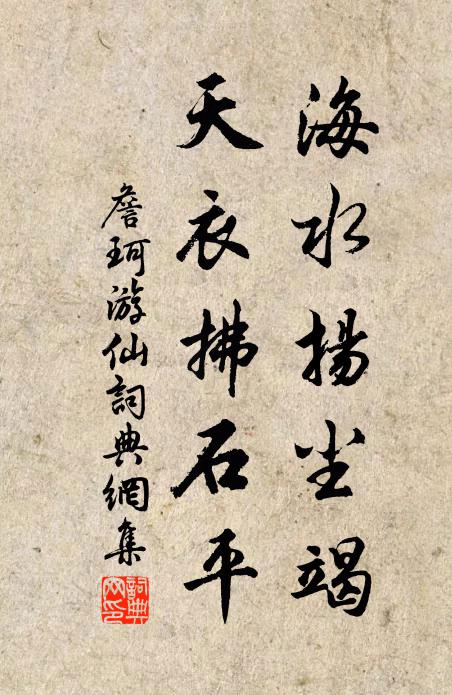 海水揚尘竭
天衣拂石平
詹珂游仙詞典網集
詞典網印